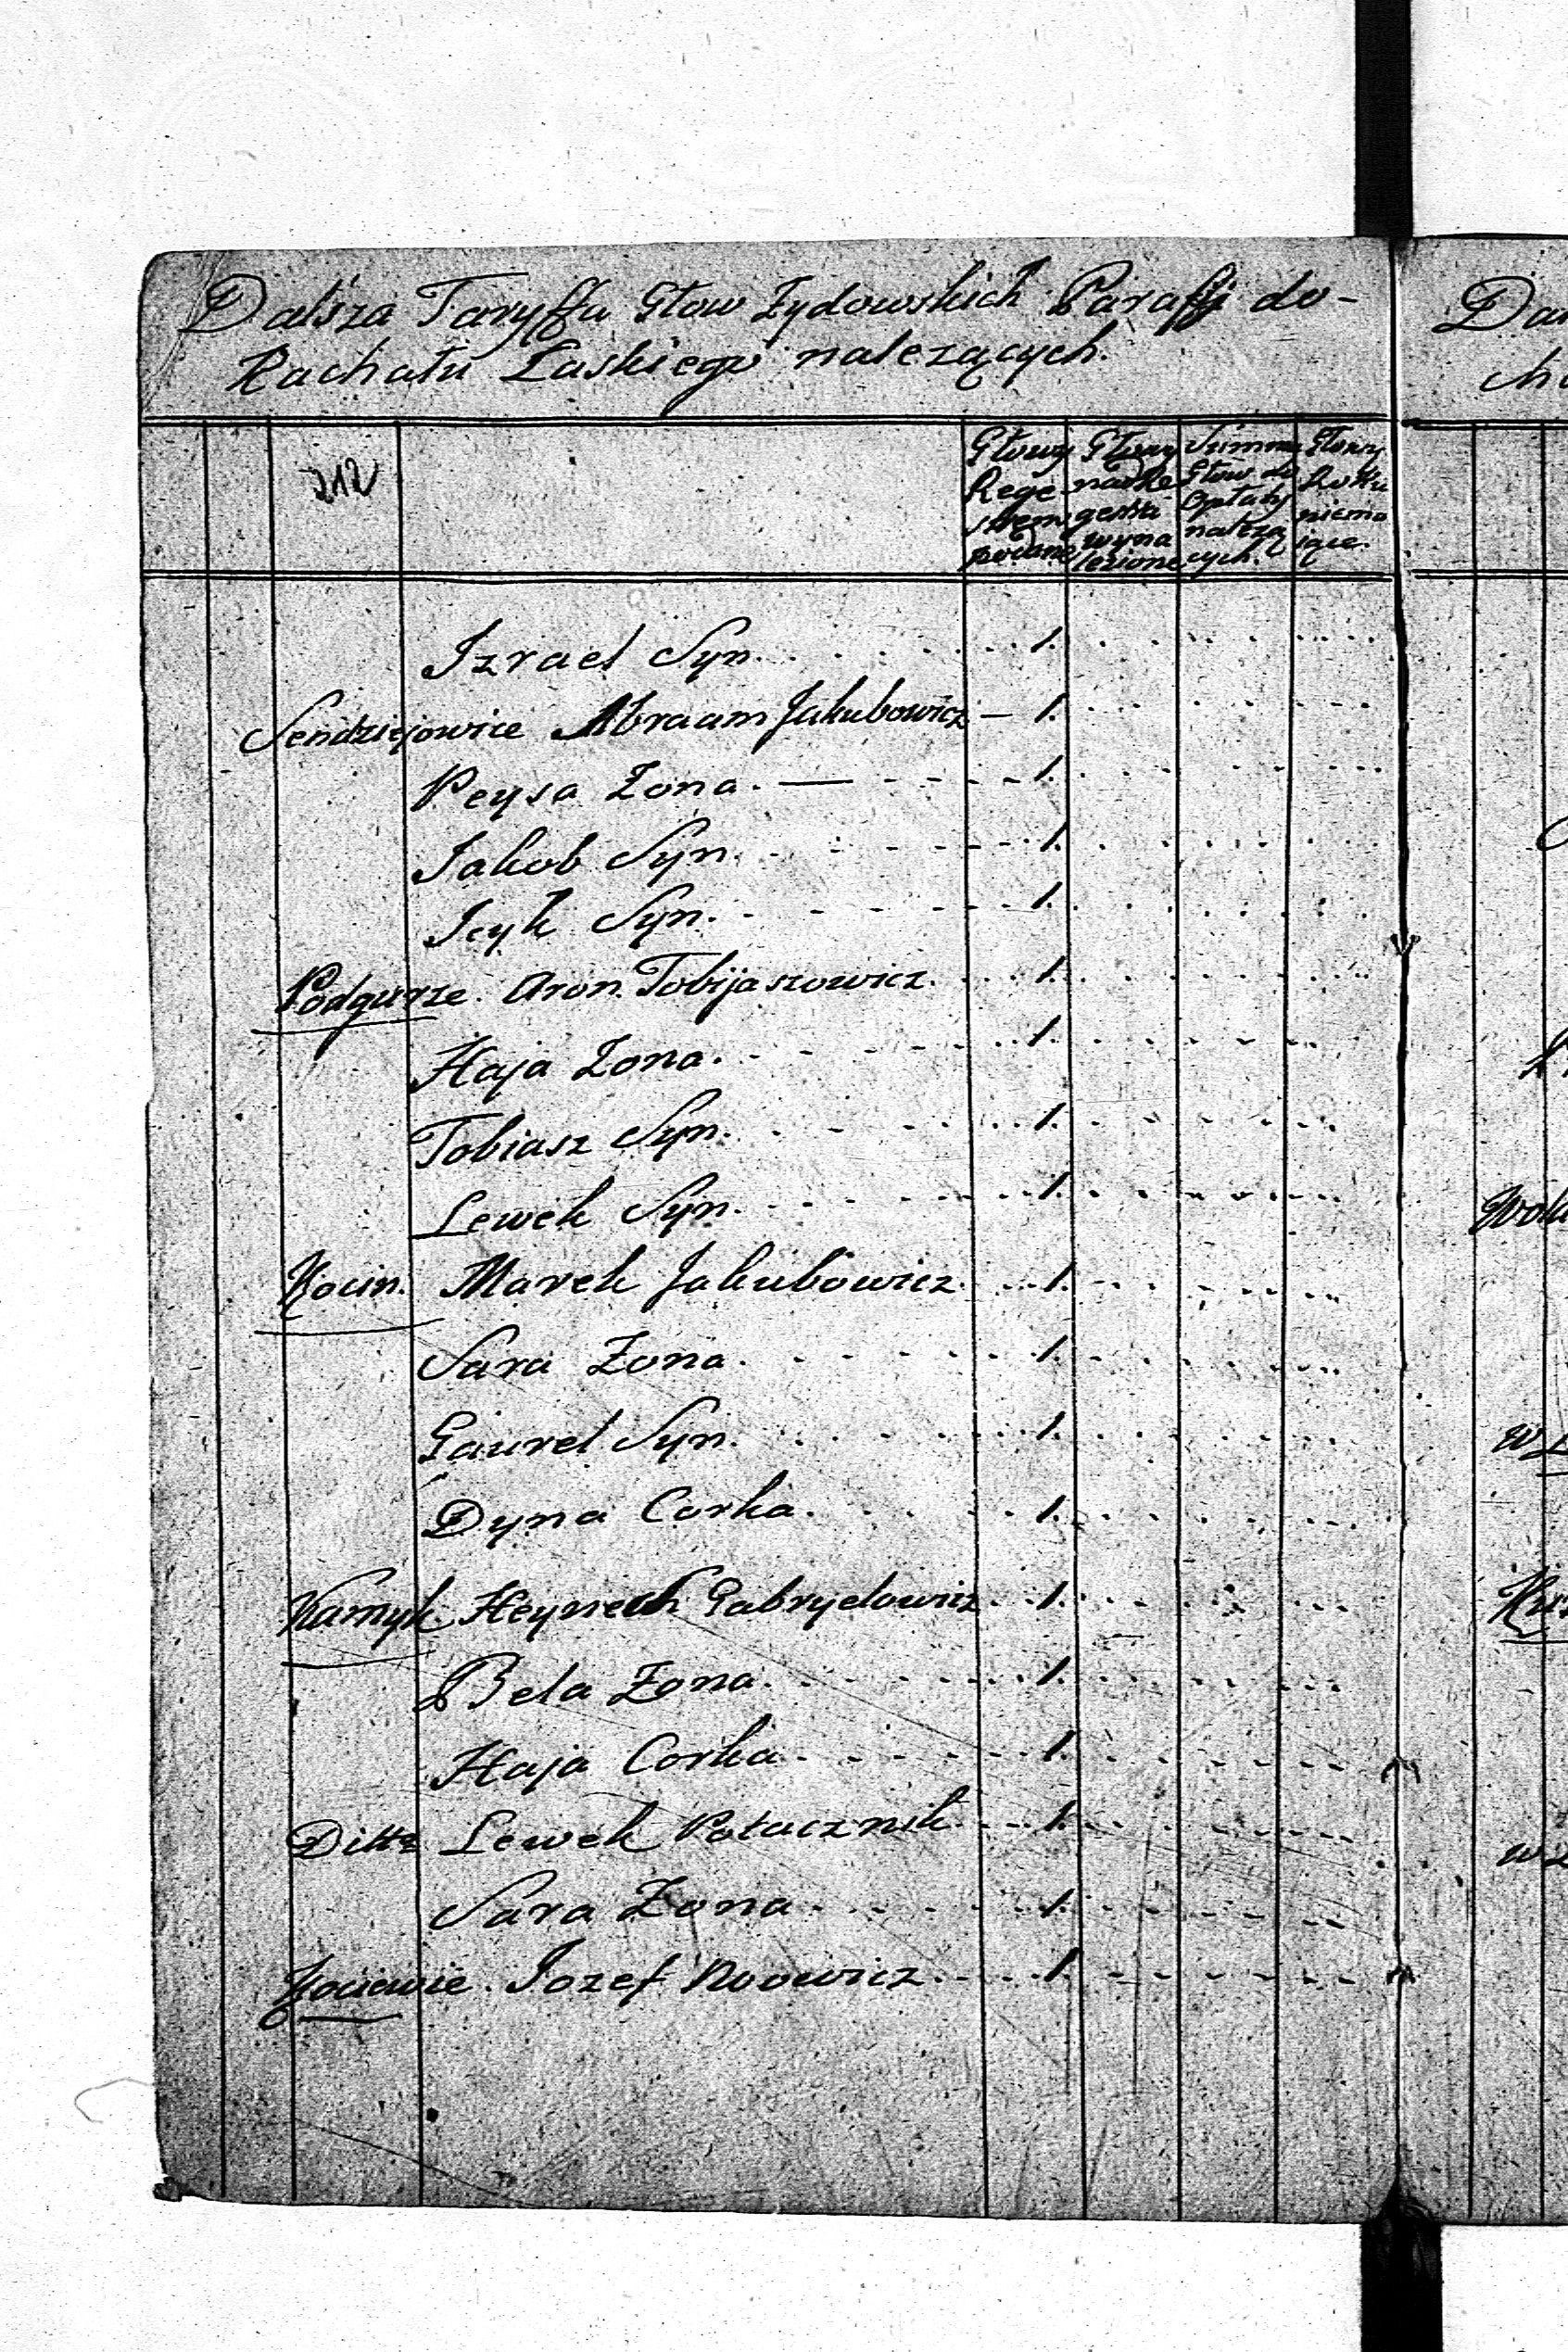 Dalsza Taryffa Głow Zydowskich Parafij do-
Kachału Łaskiego nalezących.
212
Głowy Rege strem podane
Głowy nadRe gestra wyna lezione
Summa Głow do Opłaty nalezą cych.
Głowy Roku niema iące.
Izrael Syn. 1.
Sendziejowice Abraam Jakubowicz — 1.
Peysa Zona. — 1.
Jakob Syn. 1.
Icyk Syn. 1.
Podgurze. Aron Tobijaszowicz. 1.
Haja Zona. 1.
Tobiasz Syn. 1.
Lewek Syn. 1.
Kocin. Marek Jakubowicz. 1.
Sara Zona. 1.
Gaurel Syn. 1.
Dyna Corka. 1.
Kamyk. Heynech Gabryelowicz 1.
Bela Zona. 1.
Haja Corka. 1.
Ditto Lewek Potacznik. 1.
Sara Zona. 1.
Jozef 1.